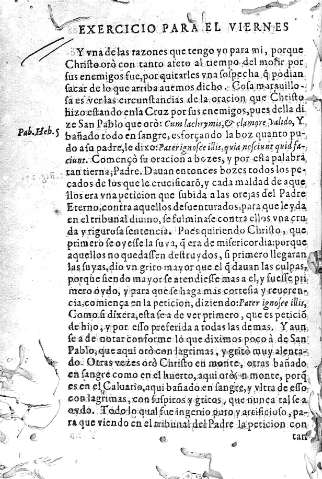 EXERCICIO PARA EL VIERNES
Y vna de las razones que tengo yo para mi, porque
Christo orò con tanto afeto al tiempo del morir por
sus enemigos fue, por quitarles vna sospecha q̃ podian
sacar de lo que arriba auemos dicho. Cosa marauillo-
sa es ver las circunstancias de la oracion que Christo
hizo estando en la Cruz por sus enemigos, pues della di
Pab. Heb. 5
ze San Pablo que orò: Cum lachrymis, & clamore valido, Y
bañado todo en sangre, esforçando la boz quanto pu-
do a su padre, le dixo: Pater ignosce illis, quia nesciunt quid fa-
ciunt. Començò su oracion a bozes, y por esta palabra
tan tierna, Padre. Dauan entonces bozes todos los pe-
cados de los que le crucificarõ, y cada maldad de aque-
llos era vna peticion que subia a las orejas del Padre
Eterno, contra aquellos desuenturados, para que leyda
en el tribunal diuino, se fulminasse contra ellos vna cru-
da y rigurosa sentencia. Pues quiriendo Christo, que
primero se oyesse la suya, q̃ era de misericordia: porque
aquellos no quedassen destruydos, si primero llegaran
las suyas, dio vn grito mayor que el q̃ dauan las culpas,
porque siendo mayor se atendiesse mas a el, y fuesse pri
mero oydo, y para que se haga mas cortesia y reueren-
cia, comiença en la peticion, diziendo: Pater ignosce illis,
Como si dixera, esta se a de ver primero, que es peticiõ
de hijo, y por esso preferida a todas las demas. Y aun
se a de notar conforme lo que diximos poco à de San
Pablo, que aqui orò con lagrimas, y gritò muy alenta-
do. Otras vezes orò Christo en monte, otras bañado
en sangre como en el huerto, aqui orò en monte, porq̃
es en el Caluario, aqui bañado en sangre, y vltra de esso
con lagrimas, con suspiros y gritos, que nunca tal se a
oydo. Todo lo qual fue ingenio puro y artificioso, pa-
ra que viendo en el tribunal del Padre la peticion con
tan